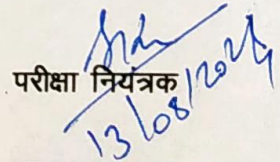 परीक्षा नियंत्रक
13/08/2024